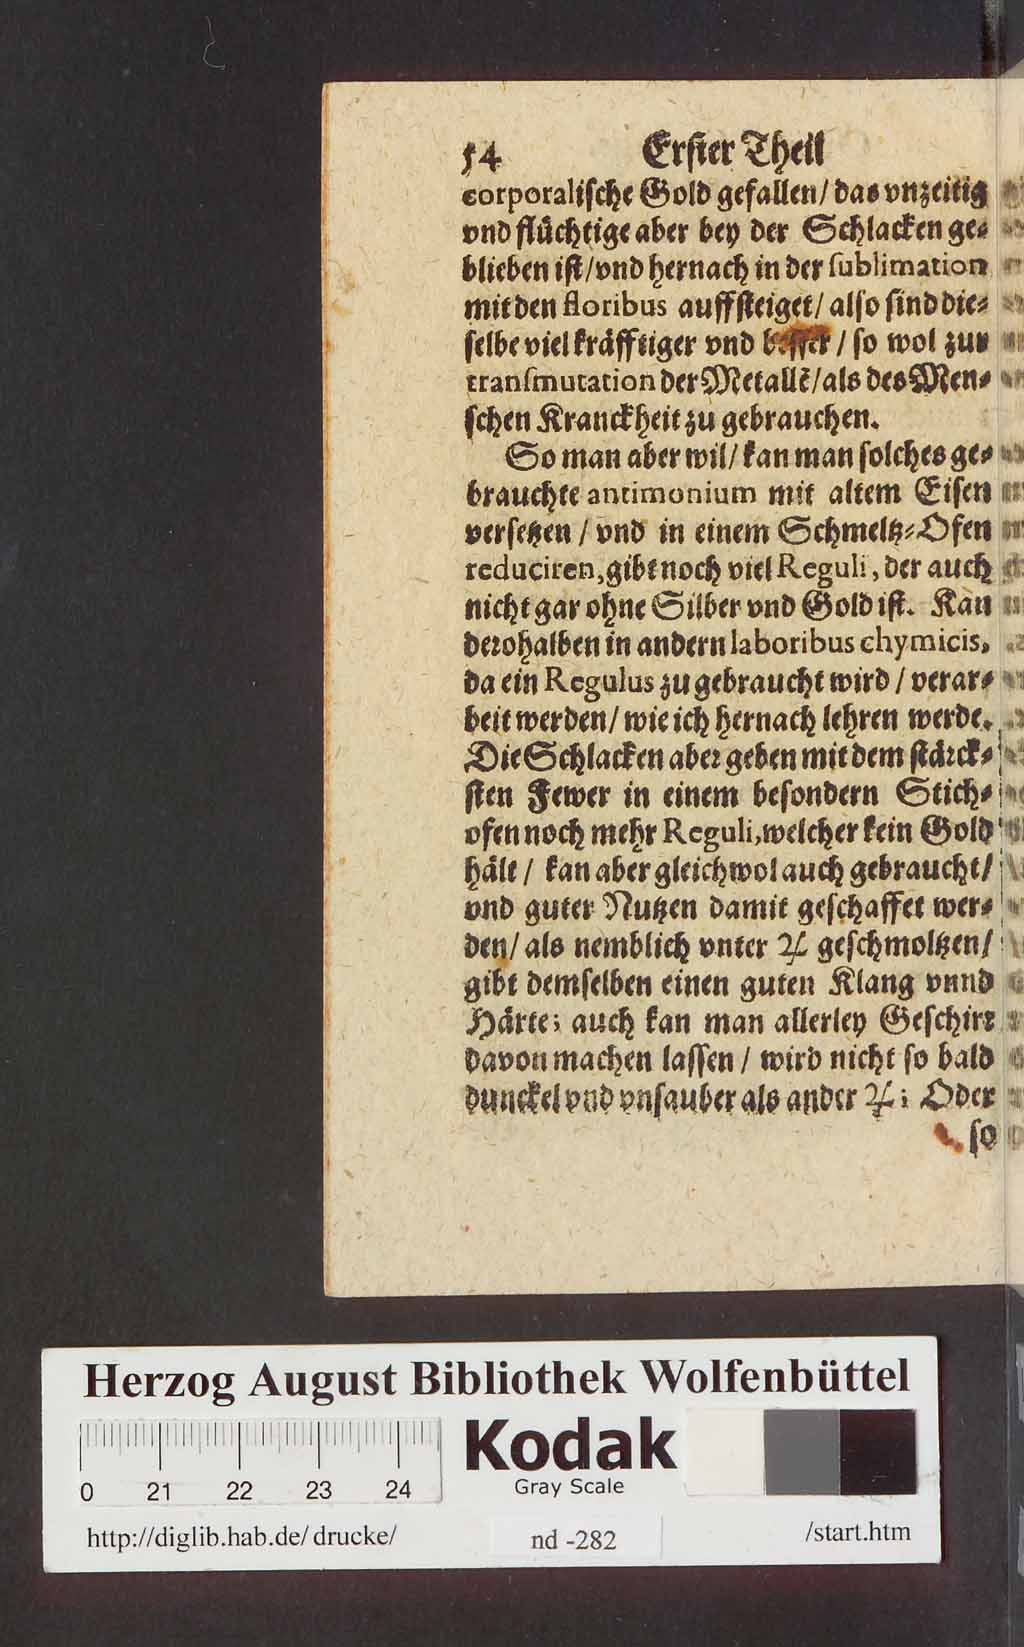 54 Erster Theil
corporalische Gold gefallen/ das vnzeitig
vnd flüchtige aber bey der Schlacken ge⸗
blieben ist/ vnd hernach in der sublimation
mit den floribus auffsteiget/ also sind die⸗
selbe viel kräfftiger vnd besser / so wol zur
transmutation der Metallẽ/ als des Men⸗
schen Kranckheit zu gebrauchen.
So man aber wil/ kan man solches ge⸗
brauchte antimonium mit altem Eisen
versetzen / vnd in einem Schmeltz⸗Ofen
reduciren, gibt noch viel Reguli, der auch
nicht gar ohne Silber vnd Gold ist. Kan
derohalben in andern laboribus chymicis,
da ein Regulus zu gebraucht wird / verar⸗
beit werden/ wie ich hernach lehren werde.
Die Schlacken aber geben mit dem stärck⸗
sten Fewer in einem besondern Stich⸗
ofen noch mehr Reguli, welcher kein Gold
hält / kan aber gleichwol auch gebraucht/
vnd guter Nutzen damit geschaffet wer⸗
den/ als nemblich vnter ♃ geschmoltzen/
gibt demselben einen guten Klang vnnd
Härte; auch kan man allerley Geschirr
davon machen lassen / wird nicht so bald
dunckel vnd vnsauber als ander ♃; Oder
so
Herzog August Bibliothek Wolfenbüttel
Kodak
Gray Scale
0 21 22 23 24
http://diglib.hab.de/ drucke/ nd -282 /start.htm